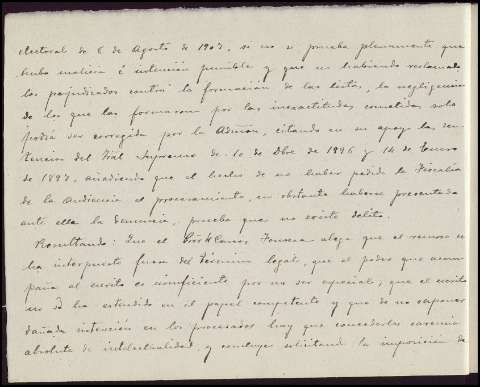 electoral de 6 de Agosto de 1907, si no se prueba plenamente que
hubo malicia é intención punible y que no habiendo reclamado
los perjudicados contra la formacion de las listas, la negligencia
de los que las formaron por las inexactitudes cometidas solo
podia ser corregida por la Admón, citando en su apoyo las sen-
tencias del Tral Supremo de 10 de Dbre de 1896 y 14 de Enero
de 1897, añadiendo que el hecho de no haber pedido la Fiscalia
de la Audiencia el procesamiento, no obstante haberse presentado
ante ella la denuncia, prueba que no existe delito.
Resultando: Que el Fonseca alega que el recurso se
ha interpuesto fuera del término legal, que el poder que acom-
paña al escrito es insuficiente por no ser especial, que el escrito
no se ha extendido en el papel competente y que de no suponer
dañada intención en los procesados hay que concederles carencia
absoluta de intelectualidad, y concluye solicitando la imposicion de